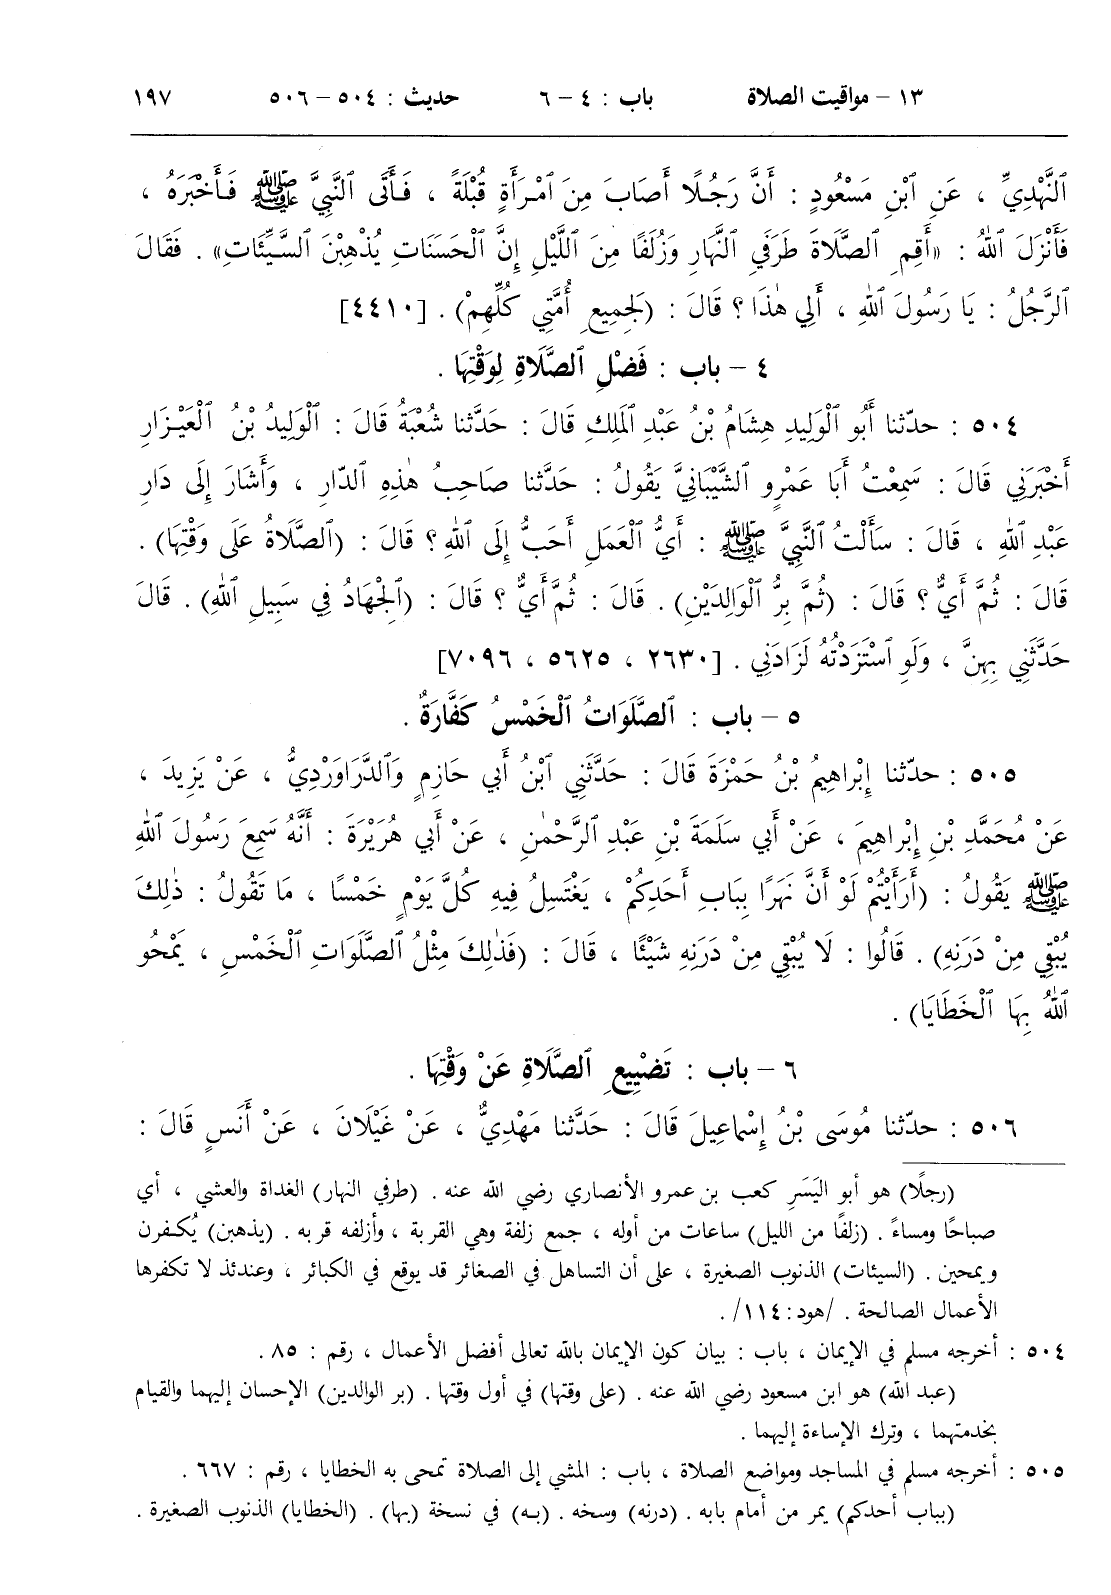 ١٣ – مواقيت الصلاة باب : ٤ – ٦ حديث : ٥٠٤ – ٥٠٦ ١٩٧
ٱلنَّهْدِيِّ ، عَنِ ٱبْنِ مَسْعُودٍ : أَنَّ رَجُلًا أَصَابَ مِنَ ٱمْرَأَةٍ قُبْلَةً ، فَأَتَى ٱلنَّبِيَّ ﷺ فَأَخْبَرَهُ ،
فَأَنْزَلَ ٱللهُ : «أَقِمِ ٱلصَّلَاةَ طَرَفَيِ ٱلنَّهَارِ وَزُلَفًا مِنَ ٱللَّيْلِ إِنَّ ٱلْحَسَنَاتِ يُذْهِبْنَ ٱلسَّيِّئَاتِ» . فَقَالَ
ٱلرَّجُلُ : يَا رَسُولَ ٱللهِ ، أَلِي هٰذَا ؟ قَالَ : (لِجَمِيعِ أُمَّتِي كُلِّهِمْ) . [٤٤١٠]
٤ – باب : فَضْلِ ٱلصَّلَاةِ لِوَقْتِهَا .
٥٠٤ : حدّثنا أَبُو ٱلْوَلِيدِ هِشَامُ بْنُ عَبْدِ ٱلْمَلِكِ قَالَ : حَدَّثَنَا شُعْبَةُ قَالَ : ٱلْوَلِيدُ بْنُ ٱلْعَيْزَارِ
أَخْبَرَنِي قَالَ : سَمِعْتُ أَبَا عَمْرٍو ٱلشَّيْبَانِيَّ يَقُولُ : حَدَّثَنَا صَاحِبُ هٰذِهِ ٱلدَّارِ ، وَأَشَارَ إِلَى دَارِ
عَبْدِ ٱللهِ ، قَالَ : سَأَلْتُ ٱلنَّبِيَّ ﷺ : أَيُّ ٱلْعَمَلِ أَحَبُّ إِلَى ٱللهِ ؟ قَالَ : (ٱلصَّلَاةُ عَلَى وَقْتِهَا) .
قَالَ : ثُمَّ أَيٌّ ؟ قَالَ : (ثُمَّ بِرُّ ٱلْوَالِدَيْنِ) . قَالَ : ثُمَّ أَيٌّ ؟ قَالَ : (ٱلْجِهَادُ فِي سَبِيلِ ٱللهِ) . قَالَ
حَدَّثَنِي بِهِنَّ ، وَلَوِ ٱسْتَزَدْتُهُ لَزَادَنِي . [٢٦٣٠ ، ٥٦٢٥ ، ٧٠٩٦]
٥ – باب : ٱلصَّلَوَاتُ ٱلْخَمْسُ كَفَّارَةٌ .
٥٠٥ : حدّثنا إِبْرَاهِيمُ بْنُ حَمْزَةَ قَالَ : حَدَّثَنِي ٱبْنُ أَبِي حَازِمٍ وَٱلدَّرَاوَرْدِيُّ ، عَنْ يَزِيدَ ،
عَنْ مُحَمَّدِ بْنِ إِبْرَاهِيمَ ، عَنْ أَبِي سَلَمَةَ بْنِ عَبْدِ ٱلرَّحْمٰنِ ، عَنْ أَبِي هُرَيْرَةَ : أَنَّهُ سَمِعَ رَسُولَ ٱللهِ
ﷺ يَقُولُ : (أَرَأَيْتُمْ لَوْ أَنَّ نَهَرًا بِبَابِ أَحَدِكُمْ ، يَغْتَسِلُ فِيهِ كُلَّ يَوْمٍ خَمْسًا ، مَا تَقُولُ : ذٰلِكَ
يُبْقِي مِنْ دَرَنِهِ) . قَالُوا : لَا يُبْقِي مِنْ دَرَنِهِ شَيْئًا ، قَالَ : (فَذٰلِكَ مِثْلُ ٱلصَّلَوَاتِ ٱلْخَمْسِ ، يَمْحُو
ٱللهُ بِهَا ٱلْخَطَايَا) .
٦ – باب : تَضْيِيعِ ٱلصَّلَاةِ عَنْ وَقْتِهَا .
٥٠٦ : حدّثنا مُوسَى بْنُ إِسْمَاعِيلَ قَالَ : حَدَّثَنَا مَهْدِيٌّ ، عَنْ غَيْلَانَ ، عَنْ أَنَسٍ قَالَ :
(رجلًا) هو أبو اليَسَرِ كعب بن عمرو الأنصاري رضي الله عنه . (طرفي النهار) الغداة والعشي ، أي
صباحًا ومساءً . (زلفًا من الليل) ساعات من أوله ، جمع زلفة وهي القربة ، وأزلفه قربه . (يذهبن) يُكفرن
ويمحين . (السيئات) الذنوب الصغيرة ، على أن التساهل في الصغائر قد يوقع في الكبائر ، وعندئذ لا تكفرها
الأعمال الصالحة . /هود: ١١٤/ .
٥٠٤ : أخرجه مسلم في الإيمان ، باب : بيان كون الإيمان بالله تعالى أفضل الأعمال ، رقم : ٨٥ .
(عبد الله) هو ابن مسعود رضي الله عنه . (على وقتها) في أول وقتها . (بر الوالدين) الإحسان إليهما والقيام
بخدمتهما ، وترك الإساءة إليهما .
٥٠٥ : أخرجه مسلم في المساجد ومواضع الصلاة ، باب : المشي إلى الصلاة تمحى به الخطايا ، رقم : ٦٦٧ .
(بباب أحدكم) يمر من أمام بابه . (درنه) وسخه . (به) في نسخة (بها) . (الخطايا) الذنوب الصغيرة .